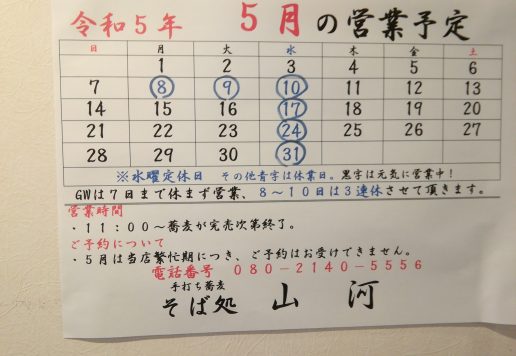 令和5年 5月の営業予定
日 月 火 水 木 金 土
1 2 3 4 5 6
7 8 9 10 11 12 13
14 15 16 17 18 19 20
21 22 23 24 25 26 27
28 29 30 31
※水曜定休日 その他青字は休業日。黒字は元気に営業中!
GWは7日まで休まず営業、8~10日は3連休させて頂きます。
営業時間
・11:00~蕎麦が完売次第終了。
ご予約について
・5月は当店繁忙期につき、ご予約はお受けできません。
電話番号 080-2140-5556
手打ち蕎麦
そば処 山河